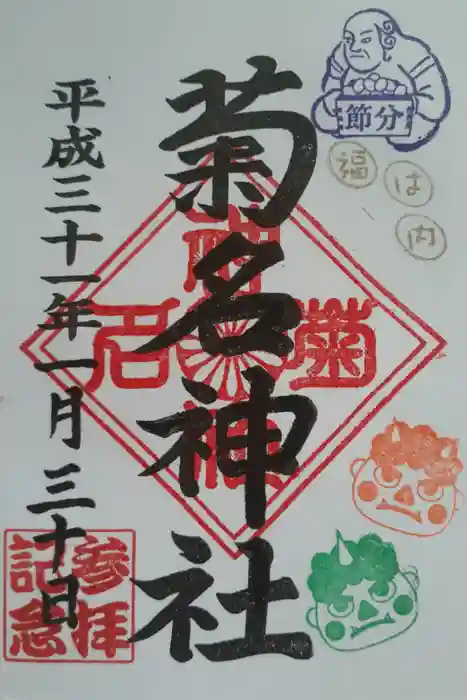 節分
福は内
菊名神社
菊名神社
平成三十一年一月三十日
参拝
記念